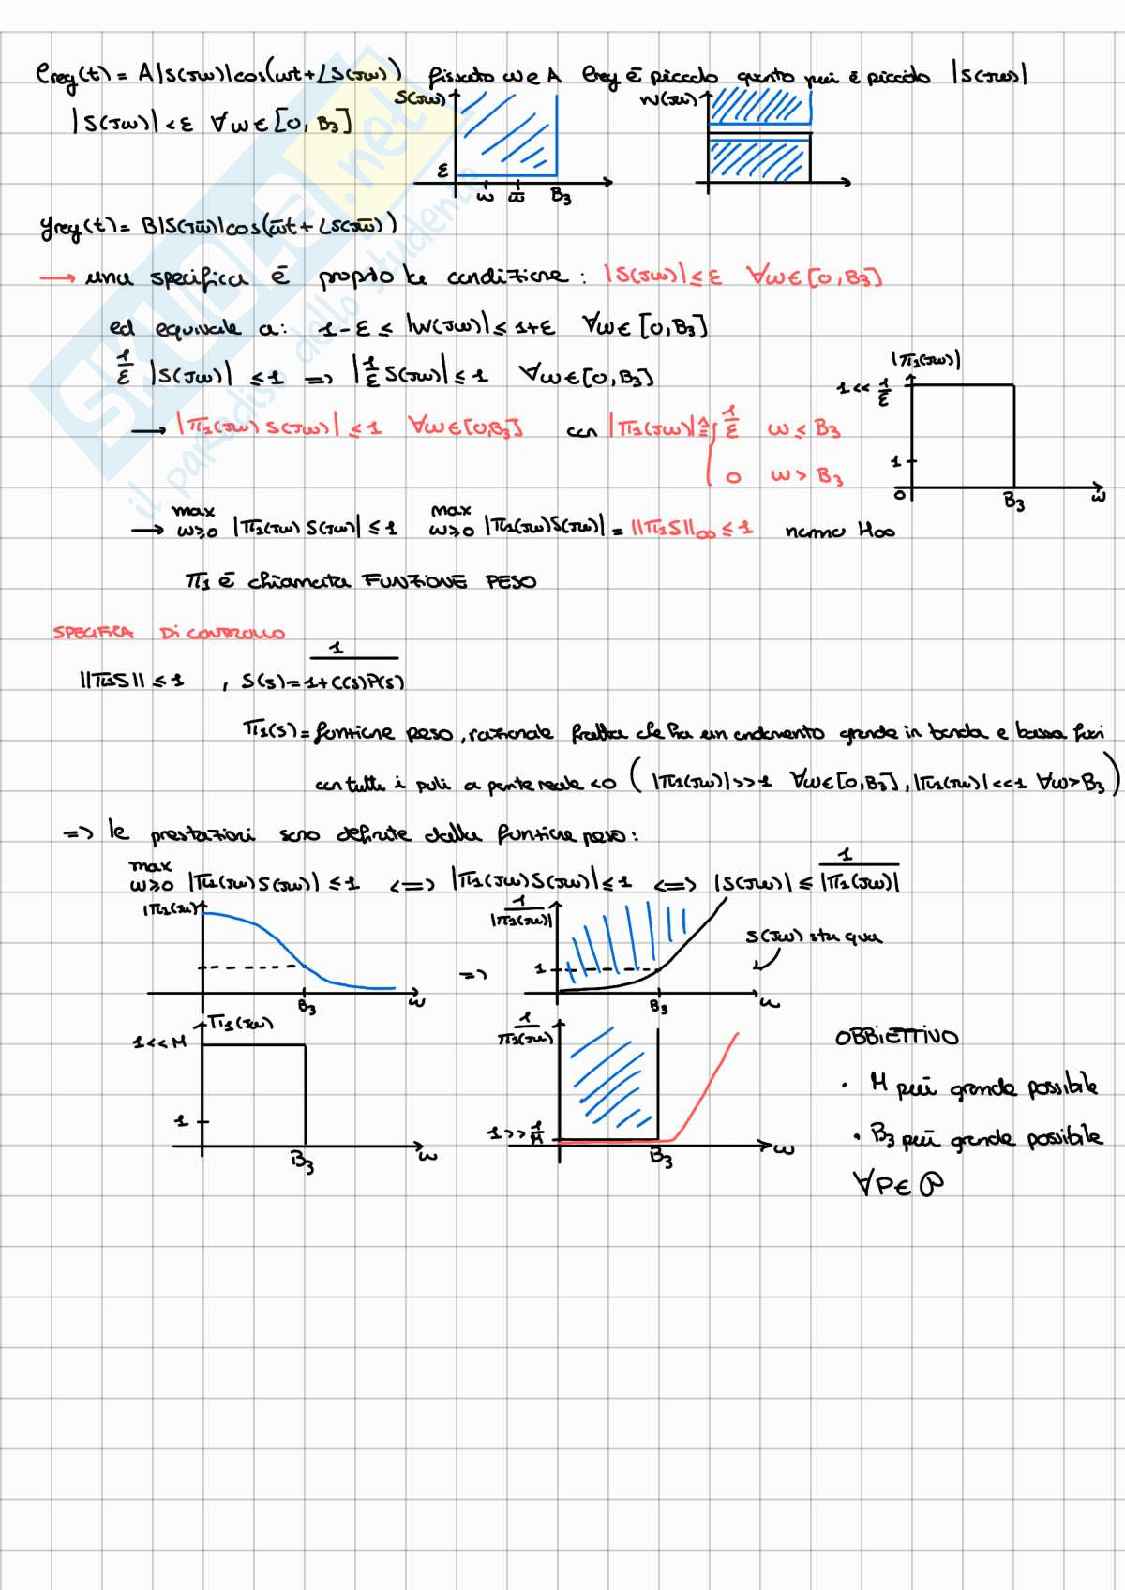 e_reg(t) = A|S(jω)|cos(ωt+∠S(jω)) fissato ω e A e_reg è piccolo quanto più è piccolo |S(jω)|
|S(jω)| < ε ∀ω∈[0, B3]
S(jω)
ε
ω ω̅ B3
W(jω)
y_reg(t) = B|S(jω̅)|cos(ω̅t + ∠S(jω̅))
→ una specifica è proprio la condizione: |S(jω)| ≤ ε ∀ω∈[0, B3]
ed equivale a: 1-ε ≤ |W(jω)| ≤ 1+ε ∀ω∈[0, B3]
1/ε |S(jω)| ≤ 1 => |1/ε S(jω)| ≤ 1 ∀ω∈[0, B3]
→ |π1(jω) S(jω)| ≤ 1 ∀ω∈[0, B3] con |π1(jω)| ≜ { 1/ε ω ≤ B3
0 ω > B3
|π1(jω)|
1 << 1/ε
1
0 B3 ω
→ max ω≥0 |π1(jω) S(jω)| ≤ 1 max ω≥0 |π1(jω)S(jω)| = ||π1S||∞ ≤ 1 norma H∞
π1 è chiamata FUNZIONE PESO
SPECIFICA Di CONTROLLO
||π1S|| ≤ 1 , S(s) = 1/(1+C(s)P(s))
π1(s) = funzione peso, razionale fratta che ha un andamento grande in banda e bassa fuori
con tutti i poli a parte reale <0 (|π1(jω)| >> 1 ∀ω∈[0, B3], |π1(jω)| << 1 ∀ω > B3)
=> le prestazioni sono definite dalla funzione peso:
max ω≥0 |π1(jω) S(jω)| ≤ 1 <=> |π1(jω) S(jω)| ≤ 1 <=> |S(jω)| ≤ 1/|π1(jω)|
|π1(jω)|
B3 ω
=>
1/|π1(jω)|
1
B3 ω
S(jω) sta qua
π1(jω)
1 << M
1
B3 ω
1/π1(jω)
1 >> 1/M
B3 ω
OBBIETTIVO
· M più grande possibile
· B3 più grande possibile
∀P∈𝒫
SKUOLA.net
il paradiso dello studente